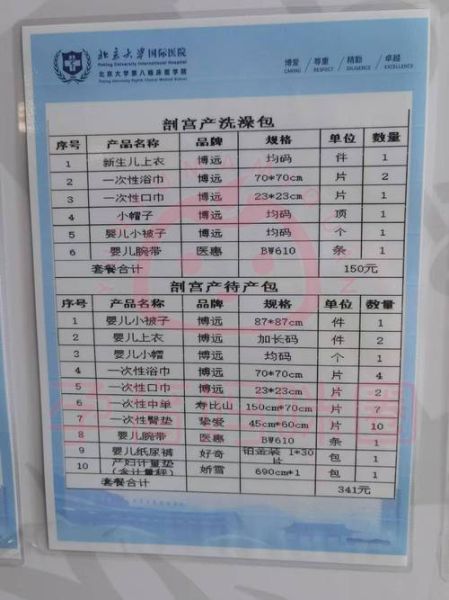 北京大学国际医院
Peking University International Hospital
北京大学第八临床医学院
Peking University Eighth Clinical Medical School
博爱 / 尊重 / 精勤 / 卓越
CARING / RESPECT / DILIGENCE / EXCELLENCE
剖宫产洗澡包
序号 产品名称 品牌 规格 单位 数量
1 新生儿上衣 博远 均码 件 1
2 一次性浴巾 博远 70*70cm 片 2
3 一次性口巾 博远 23*23cm 片 1
4 小帽子 博远 均码 顶 1
5 婴儿小被子 博远 均码 个 1
6 婴儿腕带 医惠 BW610 条 1
套餐合计 150元
剖宫产待产包
序号 产品名称 品牌 规格 单位 数量
1 婴儿小被子 博远 87*87cm 件 1
2 婴儿上衣 博远 加长码 件 2
3 婴儿小帽 博远 均码 个 1
4 一次性浴巾 博远 70*70cm 片 4
5 一次性口巾 博远 23*23cm 片 2
6 一次性中单 寿比山 150cm*70cm 片 7
7 一次性臀垫 挚爱 45cm*60cm 片 10
8 婴儿腕带 医惠 BW610 条 1
9 婴儿纸尿裤 好奇 铂金装 1*30片 包 1
10 产妇计量垫(含计量秤) 娇雪 690cm*1 包 1
套餐合计 341元